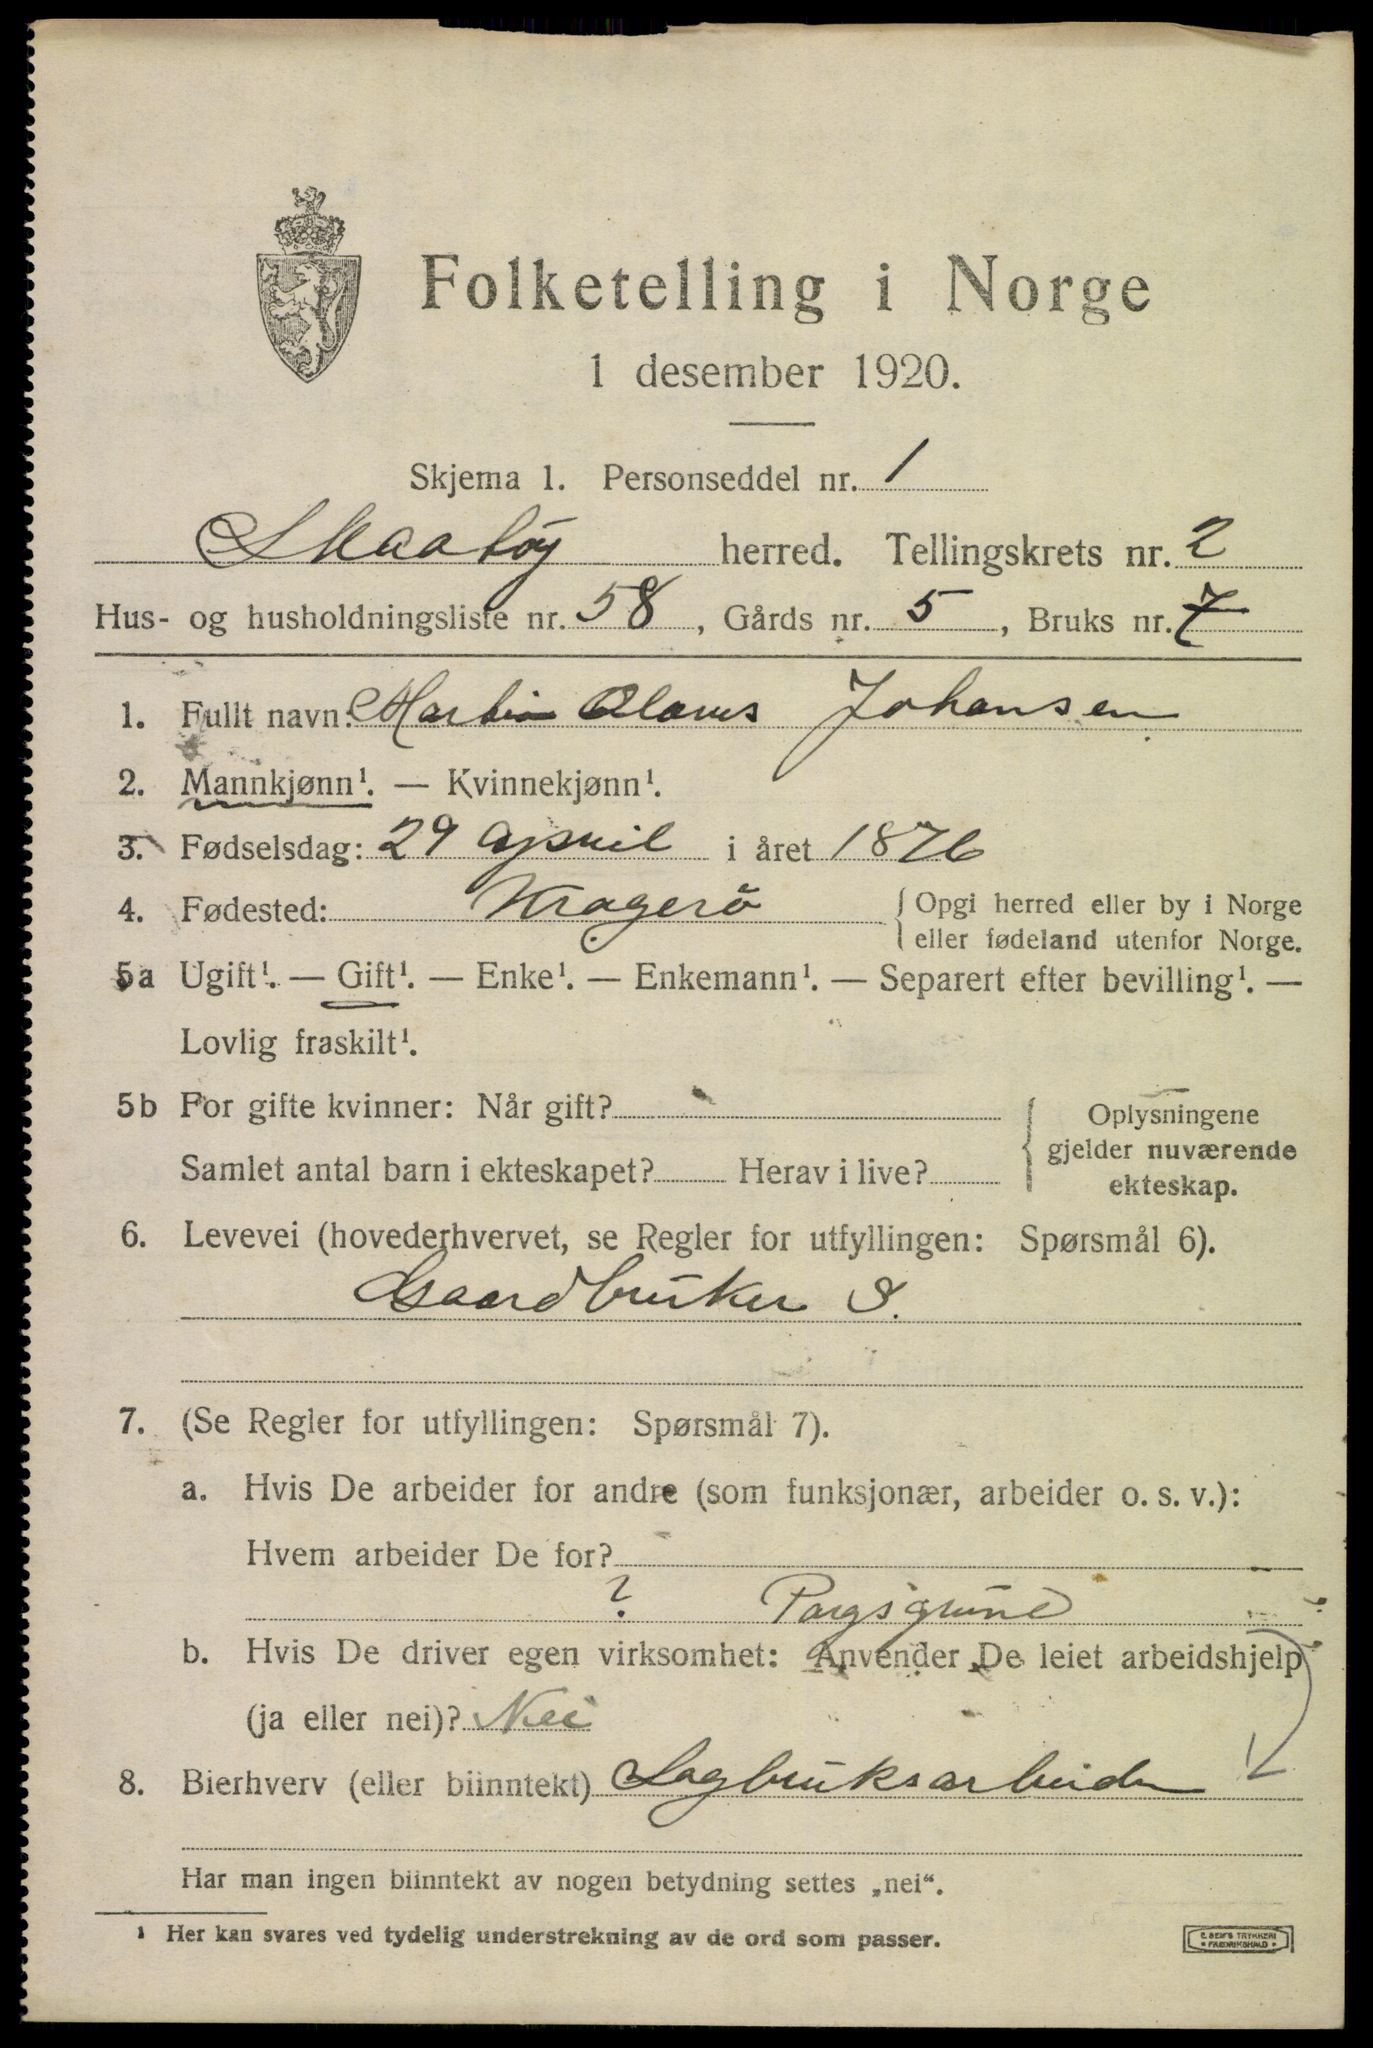 Folketelling i Norge
1 desember 1920.
Skjema 1. Personseddel nr. 1
Skaatøy herred. Tellingskrets nr. 2
Hus- og husholdningsliste nr. 58, Gårds nr. 5, Bruks nr. 7
1. Fullt navn: Martin Olaves Johansen
2. Mannkjønn¹. — Kvinnekjønn¹.
3. Fødselsdag: 29 april i året 1876
4. Fødested: Kragerö { Opgi herred eller by i Norge
eller fødeland utenfor Norge.
5a Ugift¹. — Gift¹. — Enke¹. — Enkemann¹. — Separert efter bevilling¹. —
Lovlig fraskilt¹.
5b For gifte kvinner: Når gift? { Oplysningene
gjelder nuværende
Samlet antal barn i ekteskapet? Herav i live? ekteskap.
6. Levevei (hovederhvervet, se Regler for utfyllingen: Spørsmål 6).
Gaardbruker S.
7. (Se Regler for utfyllingen: Spørsmål 7).
a. Hvis De arbeider for andre (som funksjonær, arbeider o. s. v.):
Hvem arbeider De for?
?
b. Hvis De driver egen virksomhet: Anvender De leiet arbeidshjelp
(ja eller nei)? Nei
8. Bierhverv (eller biinntekt) Sagbruksarbeider
Har man ingen biinntekt av nogen betydning settes „nei“.
¹ Her kan svares ved tydelig understrekning av de ord som passer.
E. SEM'S TRYKKERI
FREDRIKSHALD